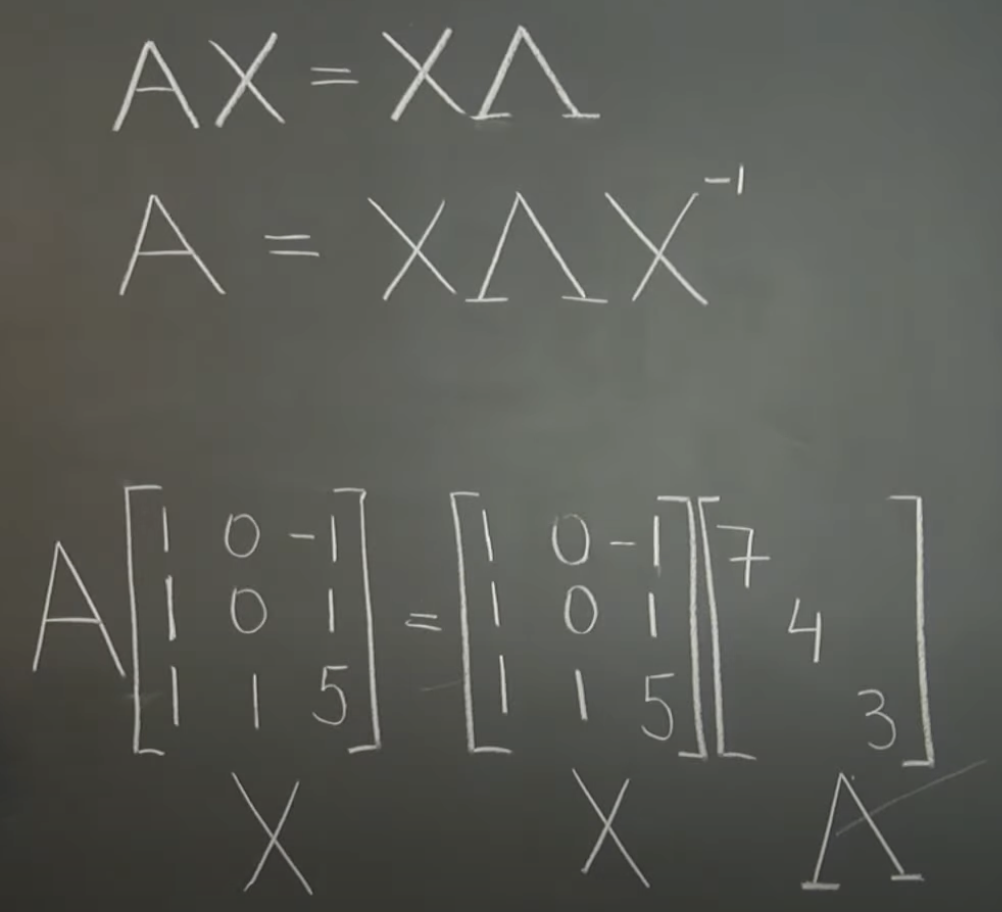 AX = XΛ
A = XΛX⁻¹
A [1 0 -1; 1 0 1; 1 1 5] = [1 0 -1; 1 0 1; 1 1 5] [7; 4; 3]
X X Λ